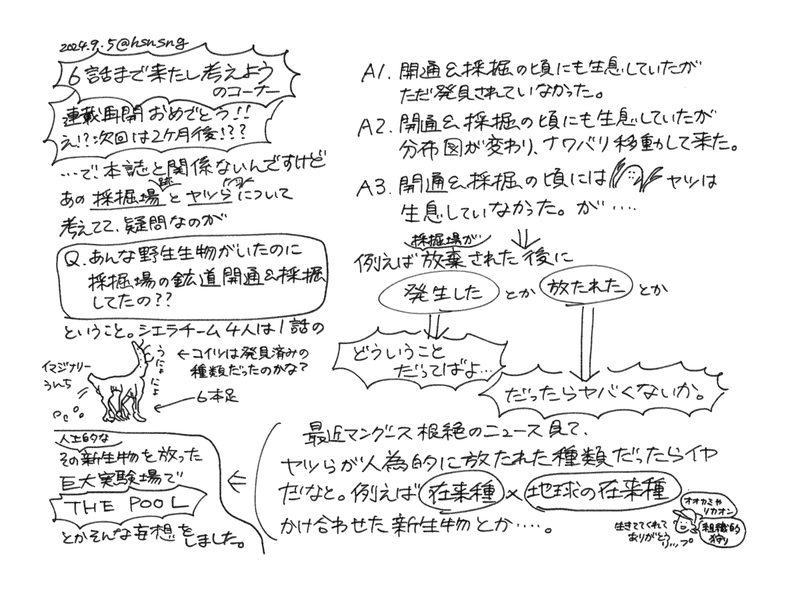 2024.9.5@hsnsng
6話まで来たし考えよう
のコーナー
連載再開おめでとう!!
え!?次回は2ヶ月後!??
…で、本誌と関係ないんですけど
あの採掘場跡とヤツらについて
考えてて、疑問なのが
Q.あんな野生生物がいたのに
採掘場の鉱道開通&採掘
してたの??
ということ。シエラチーム4人は1話の
うにょ
にょ
←コイツは発見済みの
種類だったのかな?
イマジナリー
うんち
←6本足
A1.開通&採掘の頃にも生息していたが
ただ発見されていなかった。
A2.開通&採掘の頃にも生息していたが
分布図が変わり、ナワバリ移動して来た。
A3.開通&採掘の頃には ヤツは
生息していなかった。が….
採掘場が
例えば放棄された後に
発生した とか 放たれた とか
どういうこと
だってばよ…
だったらヤバくないか。
最近マングース根絶のニュース見て、
ヤツらが人為的に放たれた種類だったらイヤ
だなと。例えば 在来種×地球の在来種
かけ合わせた新生物とか….
オオカミや
リカオン
組織的
狩り
生きててくれて
ありがとう
リップ
人工的な
その新生物を放った
巨大実験場で
THE POOL
とかそんな妄想をしました。